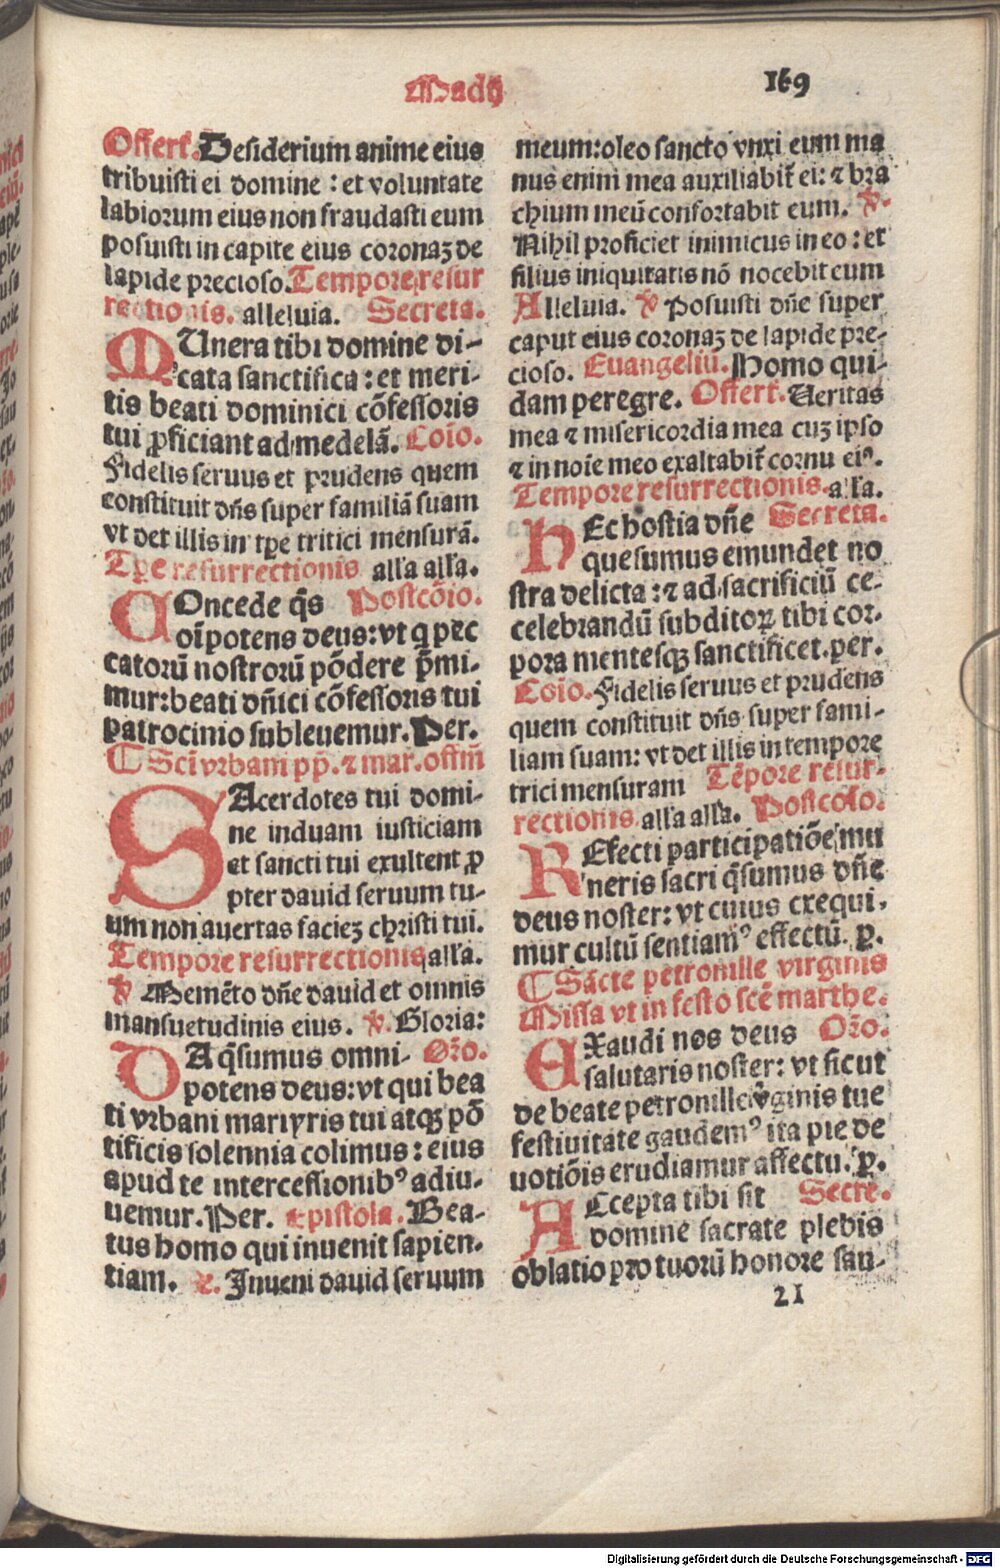 Madij
169
Offert̃. Desiderium anime eius
tribuisti ei domine : et voluntate
labiorum eius non fraudasti eum
posuisti in capite eius coronaꝫ de
lapide precioso. Tempore resur
rectionis. alleluia. Secreta.
MUnera tibi domine di-
cata sanctifica : et meri-
tis beati dominici cõfessoris
tui ꝓficiant ad medelã. Coĩo.
Fidelis seruus et prudens quem
constituit dñs super familiã suam
vt det illis in tꝑe tritici mensurã.
Tꝑe resurrectionis alľa alľa.
COncede q̃s Postcõio.
oĩpotens deus: vt q pec
catorũ nostrorũ põdere p̃mi-
mur: beati dñici cõfessoris tui
patrocinio subleuemur. Per.
¶ Sci vrbani pp̃. ⁊ mar. offm̃
SAcerdotes tui domi-
ne induam iusticiam
et sancti tui exultent ꝓ
pter dauid seruum tu-
um non auertas facieꝫ christi tui.
Tempore resurrectionis alľa.
℣ Memẽto dñe dauid et omnis
mansuetudinis eius. ℣. Gloria:
DA q̃sumus omni- Orõ.
potens deus: vt qui bea
ti vrbani martyris tui atqꝫ põ
tificis solennia colimus : eius
apud te intercessionibꝰ adiu-
uemur. Per. Epistola. Bea-
tus homo qui inuenit sapien.
tiam. ℟. Inueni dauid seruum
meum: oleo sancto vnxi eum ma
nus enim mea auxiliabit̃ ei: ⁊ bra
chium meũ confortabit eum. ℣.
Nihil proficiet inimicus in eo : et
filius iniquitatis nõ nocebit eum
Alleluia. ℣ Posuisti dñe super
caput eius coronaꝫ de lapide pre-
cioso. Euangeliũ. Homo qui-
dam peregre. Offert̃. Ueritas
mea ⁊ misericordia mea cuꝫ ipso
⁊ in noĩe meo exaltabit̃ cornu eiꝰ.
Tempore resurrectionis. alľa.
HEc hostia dñe Secreta.
quesumus emundet no
stra delicta : ⁊ ad sacrificiũ ce-
celebrandũ subditoꝝ tibi cor-
pora mentesqꝫ sanctificet. per.
Coĩo. Fidelis seruus et prudẽns
quem constituit dñs super fami-
liam suam: vt det illis in tempore
trici mensuram Tẽpore resur-
rectionis alľa alľa. Postcõio.
REfecti participatiõe mu
neris sacri q̃sumus dñe
deus noster: vt cuius exequi-
mur cultũ sentiamꝰ effectũ. ꝑ.
¶ Sãcte petronille virginis
Missa vt in festo scẽ marthe.
EXaudi nos deus Orõ.
salutaris noster: vt sicut
de beate petronille v̾ginis tue
festiuitate gaudemꝰ ita pie de
uotiõis erudiamur affectu. ꝑ.
ACcepta tibi sit Secre.
domine sacrate plebis
oblatio pro tuorũ honore san-
21
Digitalisierung gefördert durch die Deutsche Forschungsgemeinschaft - DFG